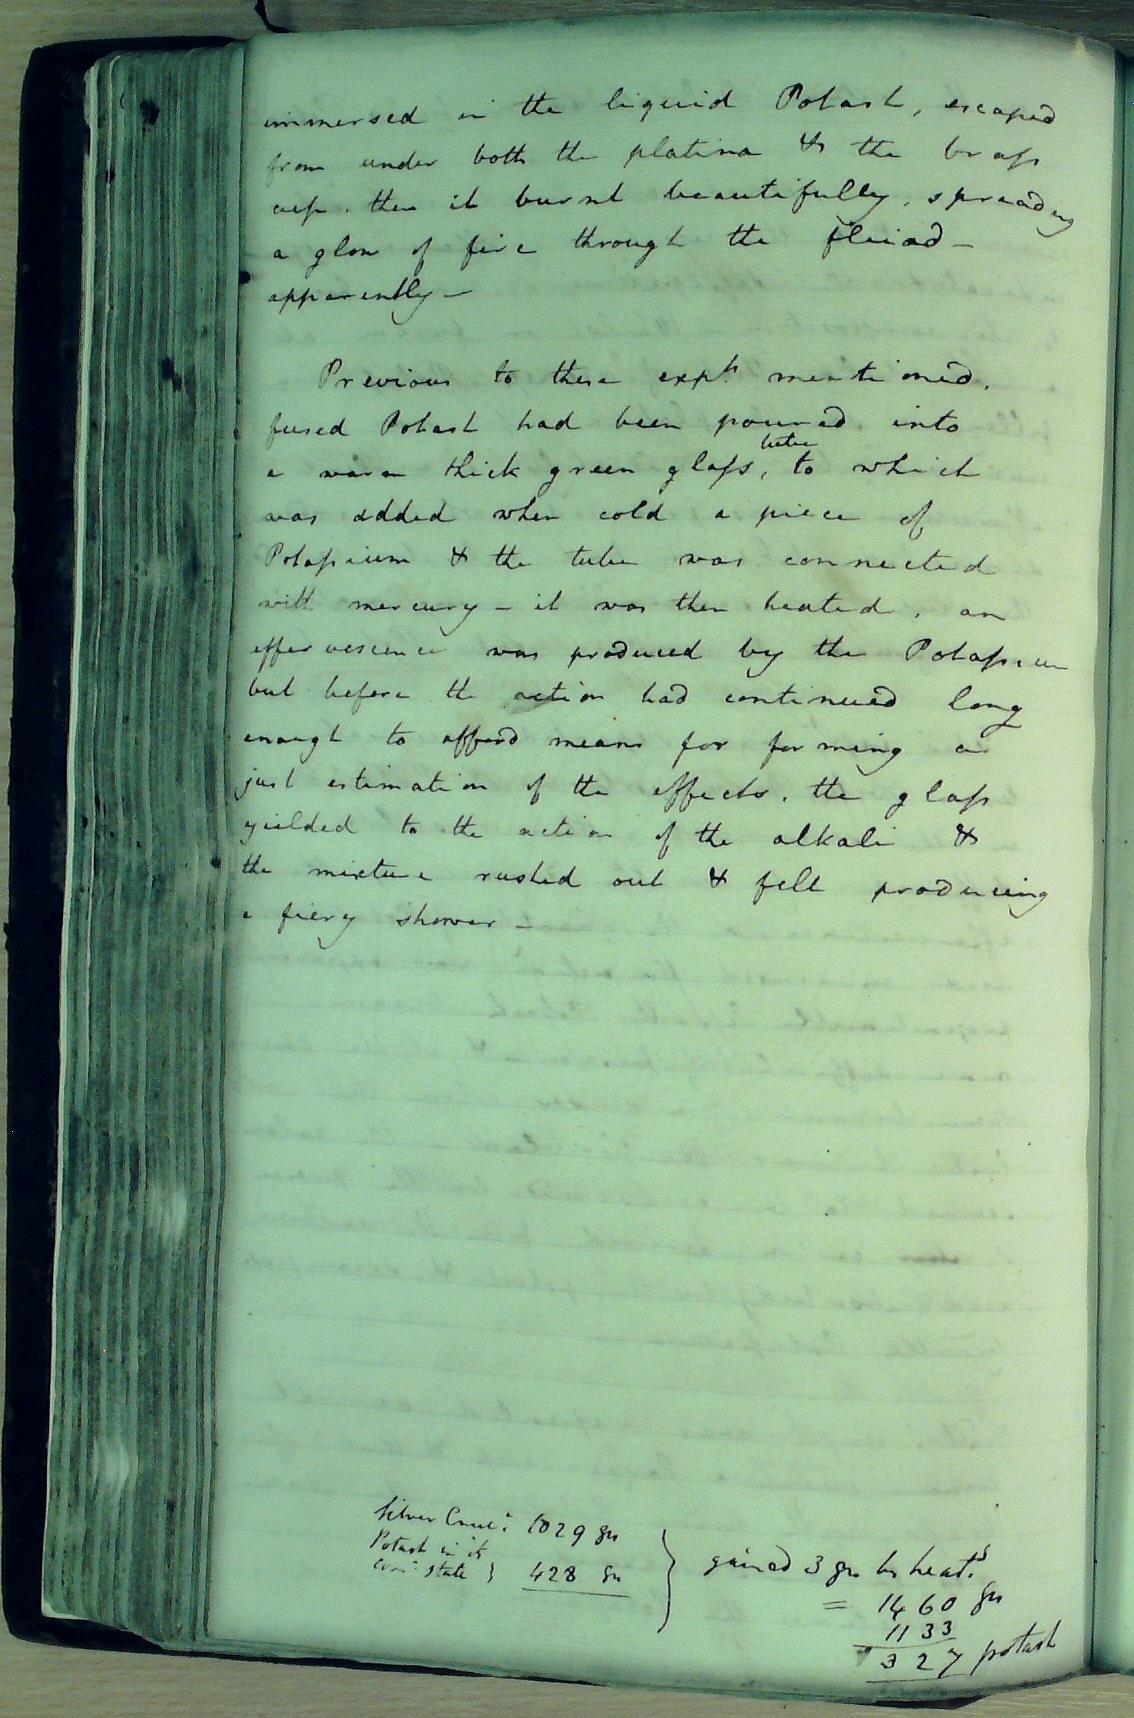 immersed in the liquid Potash, escaped
from under both the platina & the brass
cup. then it burnt beautifully, spreading
a glow of fire through the fluid —
apparently —
Previous to these expts. mentioned,
fused Potash had been poured into
a warm thick green glass, tube to which
was added when cold a piece of
Potassium & the tube was connected
with mercury — it was then heated, an
effervescence was produced by the Potassium
but before the action had continued long
enough to afford means for forming a
just estimation of the effects, the glass
yielded to the action of the alkali &
the mixture rushed out & fell producing
a fiery shower —
Silver Cruc: 1029 grs
Potash in its
com: state } 428 grs
gained 3 grs by heatg
= 1460 grs
1133
327 potash